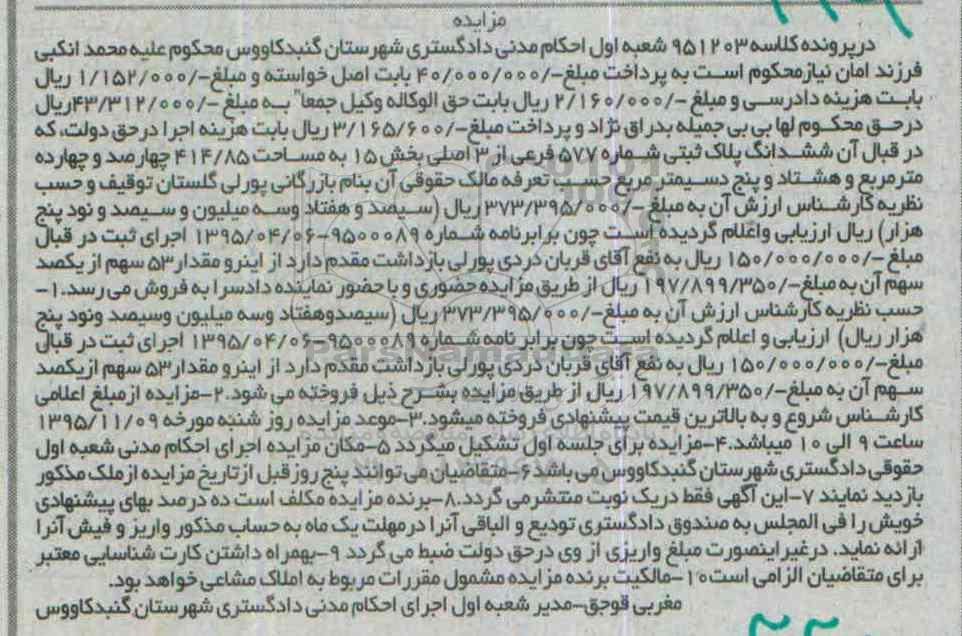 مزایده
درپرونده کلاسه ۹۵۱۲۰۳ شعبه اول احکام مدنی دادگستری شهرستان گنبدکاووس محکوم علیه محمد انکبی
فرزند امان نیازمحکوم است به پرداخت مبلغ-/۴۰/۰۰۰/۰۰۰ بابت اصل خواسته و مبلغ-/۱/۱۵۲/۰۰۰ ریال
بابت هزینه دادرسی و مبلغ -/۲/۱۶۰/۰۰۰ ریال بابت حق الوکاله وکیل جمعا" به مبلغ -/۴۳/۳۱۲/۰۰۰ریال
درحق محکوم لها بی بی جمیله بدراق نژاد و پرداخت مبلغ-/۳/۱۶۵/۶۰۰ ریال بابت هزینه اجرا درحق دولت، که
در قبال آن ششدانگ پلاک ثبتی شماره ۵۷۷ فرعی از ۳ اصلی بخش ۱۵ به مساحت ۴۱۴/۸۵ چهارصد و چهارده
مترمربع و هشتاد و پنج دسیمتر مربع حسب تعرفه مالک حقوقی آن بنام بازرگانی پورلی گلستان توقیف و حسب
نظریه کارشناس ارزش آن به مبلغ -/۳۷۳/۳۹۵/۰۰۰ ریال (سیصد و هفتاد وسه میلیون و سیصد و نود پنج
هزار) ریال ارزیابی واعلام گردیده است چون برابرنامه شماره ۹۵۰۰۰۸۹-۱۳۹۵/۰۴/۰۶ اجرای ثبت در قبال
مبلغ -/۱۵۰/۰۰۰/۰۰۰ ریال به نفع آقای قربان دردی پورلی بازداشت مقدم دارد از اینرو مقدار۵۳ سهم از یکصد
سهم آن به مبلغ-/۱۹۷/۸۹۹/۳۵۰ ریال از طریق مزایده حضوری و با حضور نماینده دادسرا به فروش می رسد.۱-
حسب نظریه کارشناس ارزش آن به مبلغ-/۳۷۳/۳۹۵/۰۰۰ ریال (سیصدوهفتاد وسه میلیون وسیصد ونود پنج
هزار ریال) ارزیابی و اعلام گردیده است چون برابر نامه شماره ۹۵۰۰۰۸۹-۱۳۹۵/۰۴/۰۶ اجرای ثبت در قبال
مبلغ-/۱۵۰/۰۰۰/۰۰۰ ریال به نفع آقای قربان دردی پورلی بازداشت مقدم دارد از اینرو مقدار۵۳ سهم ازیکصد
سهم آن به مبلغ-/۱۹۷/۸۹۹/۳۵۰ ریال از طریق مزایده بشرح ذیل فروخته می شود.۲-مزایده ازمبلغ اعلامی
کارشناس شروع و به بالاترین قیمت پیشنهادی فروخته میشود.۳-موعد مزایده روز شنبه مورخه ۱۳۹۵/۱۱/۰۹
ساعت ۹ الی ۱۰ میباشد.۴-مزایده برای جلسه اول تشکیل میگردد ۵-مکان مزایده اجرای احکام مدنی شعبه اول
حقوقی دادگستری شهرستان گنبدکاووس می باشد ۶-متقاضیان می توانند پنج روز قبل ازتاریخ مزایده ازملک مذکور
بازدید نمایند ۷-این آگهی فقط دریک نوبت منتشرمی گردد.۸-برنده مزایده مکلف است ده درصد بهای پیشنهادی
خویش را فی المجلس به صندوق دادگستری تودیع و الباقی آنرا درمهلت یک ماه به حساب مذکور واریز و فیش آنرا
ارائه نماید. درغیراینصورت مبلغ واریزی از وی درحق دولت ضبط می گردد ۹-بهمراه داشتن کارت شناسایی معتبر
برای متقاضیان الزامی است ۱۰-مالکیت برنده مزایده مشمول مقررات مربوط به املاک مشاعی خواهد بود.
مغربی قوجق-مدیر شعبه اول اجرای احکام مدنی دادگستری شهرستان گنبدکاووس